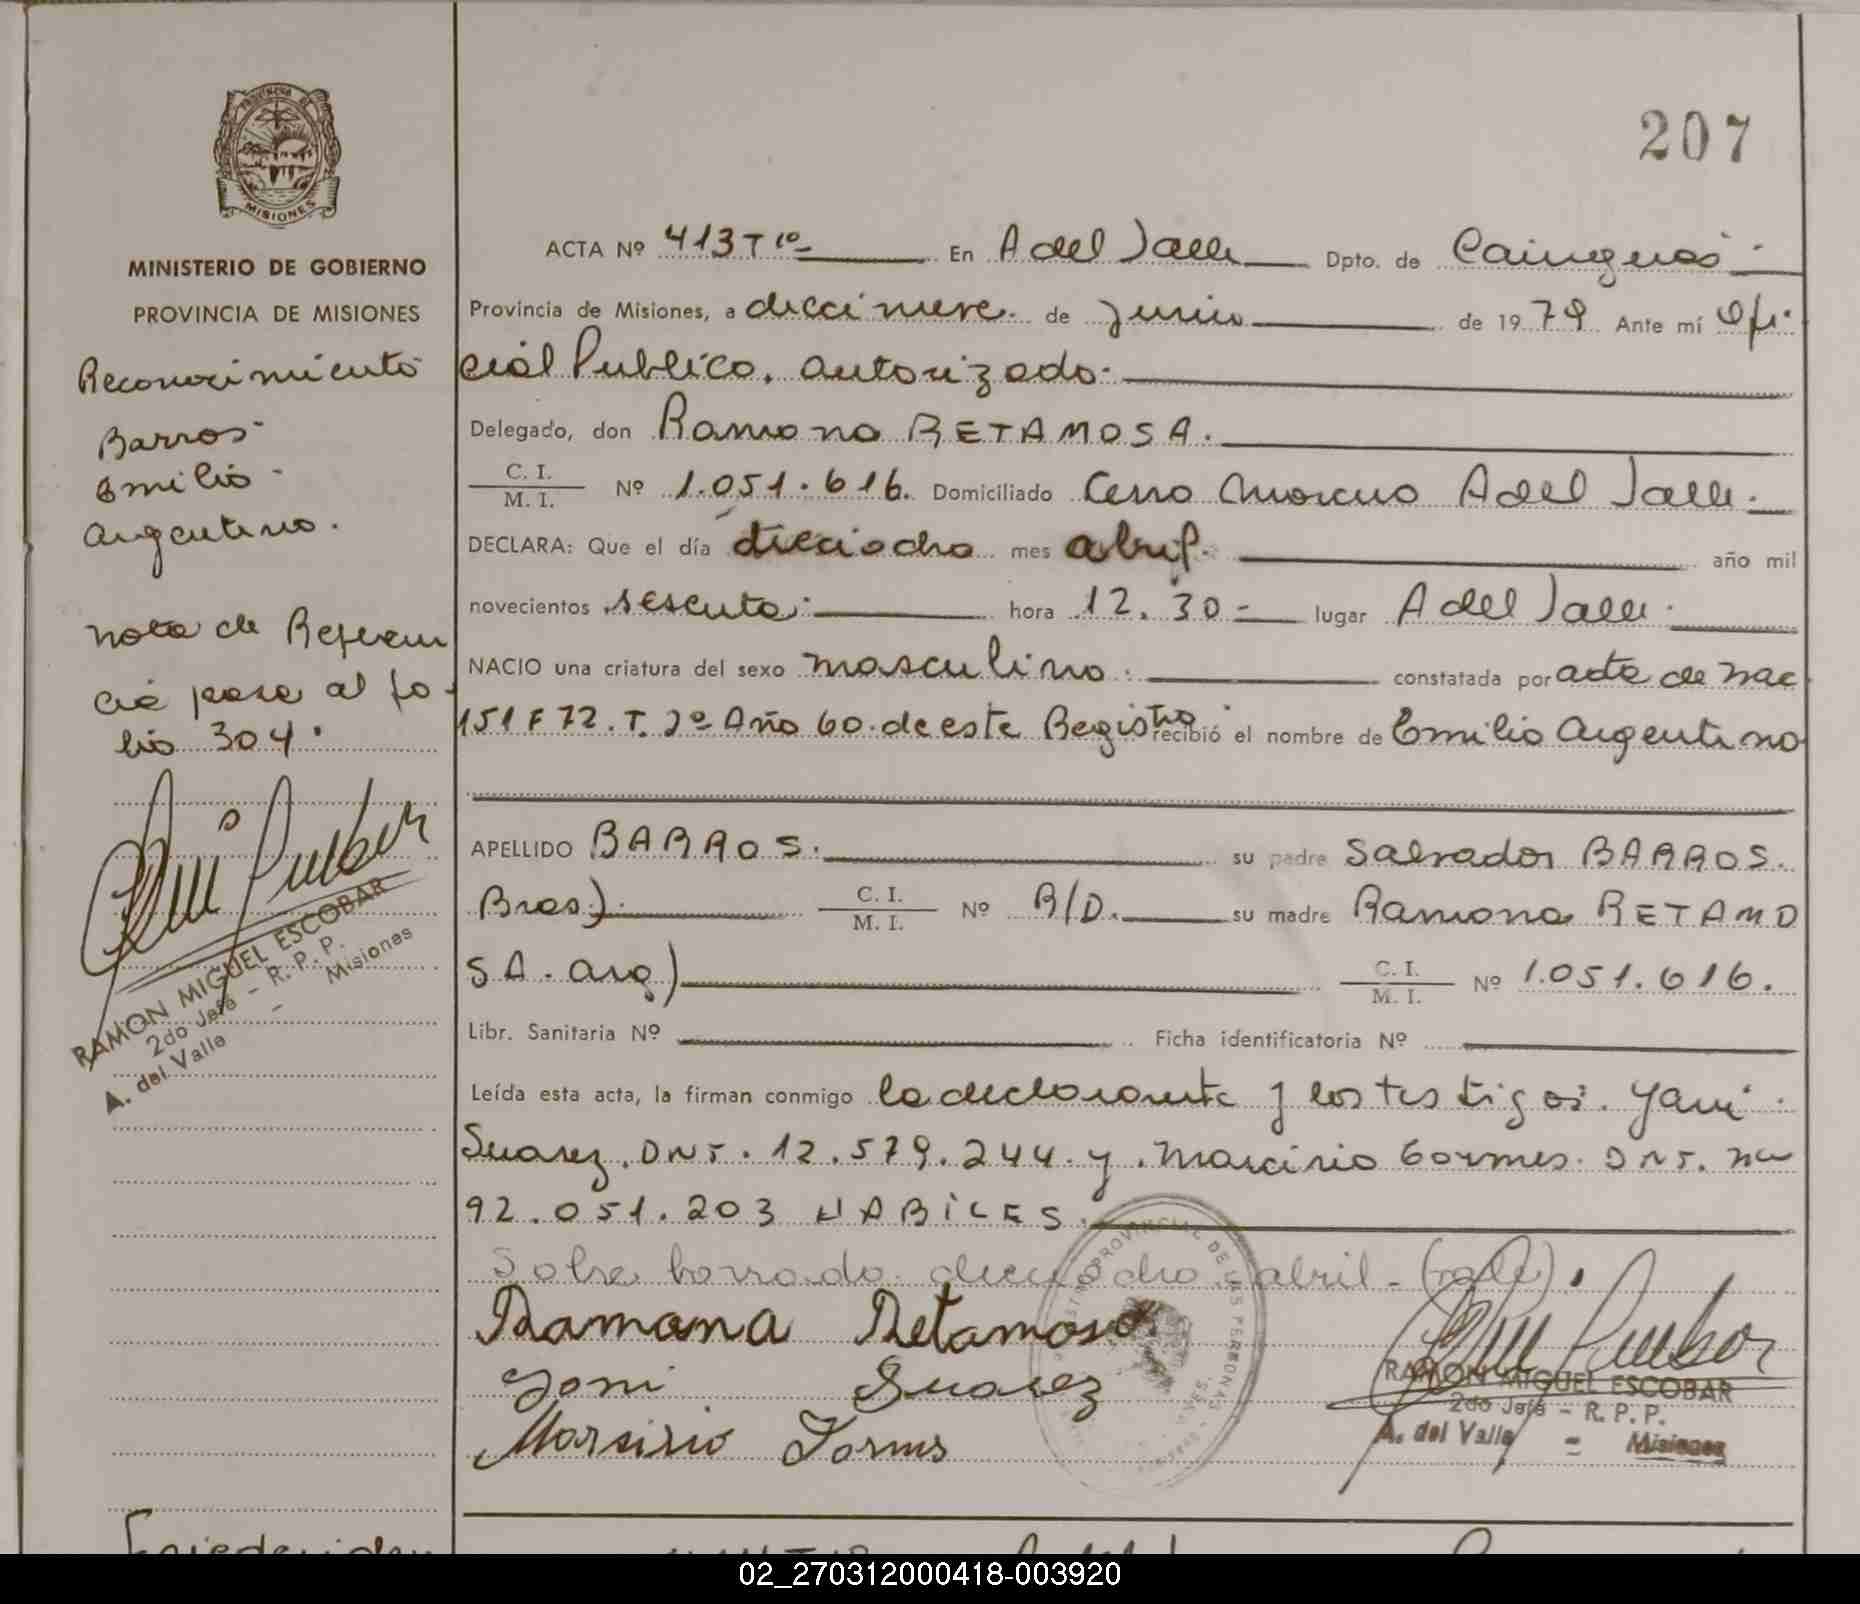 207
PROVINCIA DE
MISIONES
MINISTERIO DE GOBIERNO
PROVINCIA DE MISIONES
Reconocimiento
Barros
Emilio
Argentino.
Nota de Referen
cia pasa al fo-
lio 304.
RAMON MIGUEL ESCOBAR
2do Jefe - R. P. P.
A. del Valle - Misiones
ACTA Nº 413 T 1º En A del Valle Dpto. de Cainguas
Provincia de Misiones, a diecinueve de Junio de 1979 Ante mí Ofi
cial Publico. autorizado.
Delegado, don Ramona RETAMOSA.
C. I.
M. I. Nº 1.051.616. Domiciliado Cerro Moreno A del Valle.
DECLARA: Que el día dieciocho mes abril. año mil
novecientos sesenta hora 12.30 lugar A del Valle.
NACIO una criatura del sexo masculino. constatada por acta de nac
151 F 72. T. 2º Año 60. de este Registro recibió el nombre de Emilio Argentino
APELLIDO BARROS. su padre Salvador BARROS.
Bras.) C. I.
M. I. Nº R/D. su madre Ramona RETAMO
SA. arg) C. I.
M. I. Nº 1.051.616.
Libr. Sanitaria Nº Ficha identificatoria Nº
Leída esta acta, la firman conmigo la declarante y los testigos. Yani
Suarez. DNI. 12.579.244. y. Marcirio Gormes. DNI. Nº
92.051.203 HABILES.
Sobre borrado. dieciocho abril - (vale).
Ramona Retamosa
Yoni Suarez
Marsirio
PROVINCIAL DE LAS PERSONAS
RAMON MIGUEL ESCOBAR
2do Jefe - R. P. P.
A. del Valle - Misiones
02_270312000418-003920